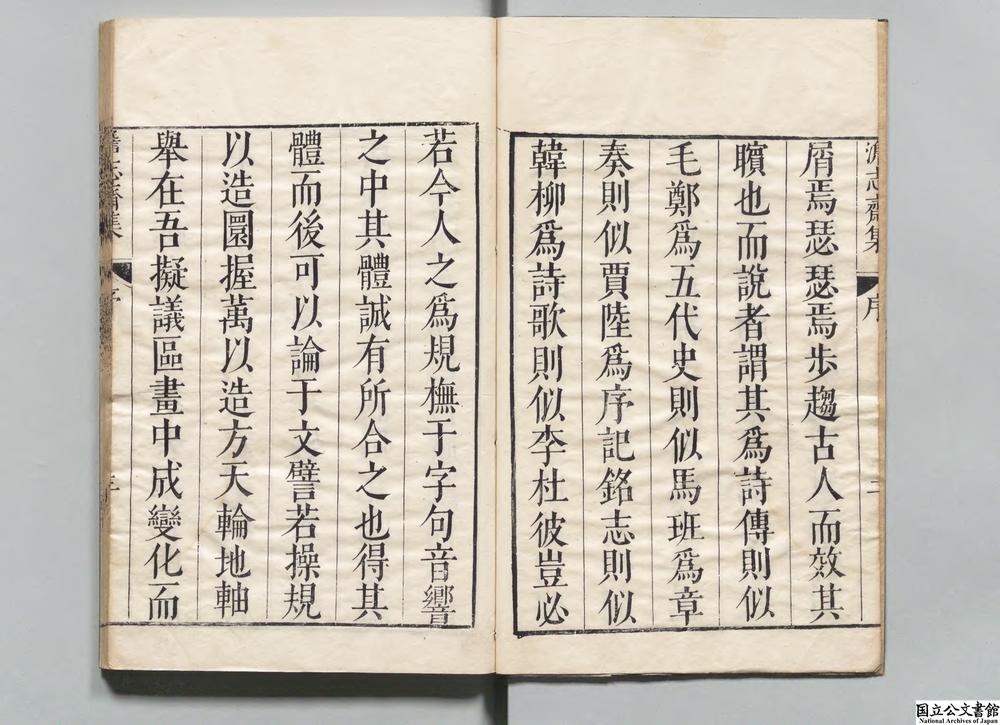 志齋集 序 二
屑焉瑟瑟焉步趨古人而效其
矉也而說者謂其爲詩傳則似
毛鄭爲五代史則似馬班爲章
奏則似賈陸爲序記銘志則似
韓柳爲詩歌則似李杜彼豈必
若今人之爲規橅于字句音響
之中其體誠有所合之也得其
體而後可以論于文譬若操規
以造圜握萬以造方天輪地軸
舉在吾擬議區畫中成變化而
志齋集 序
国立公文書館
National Archives of Japan